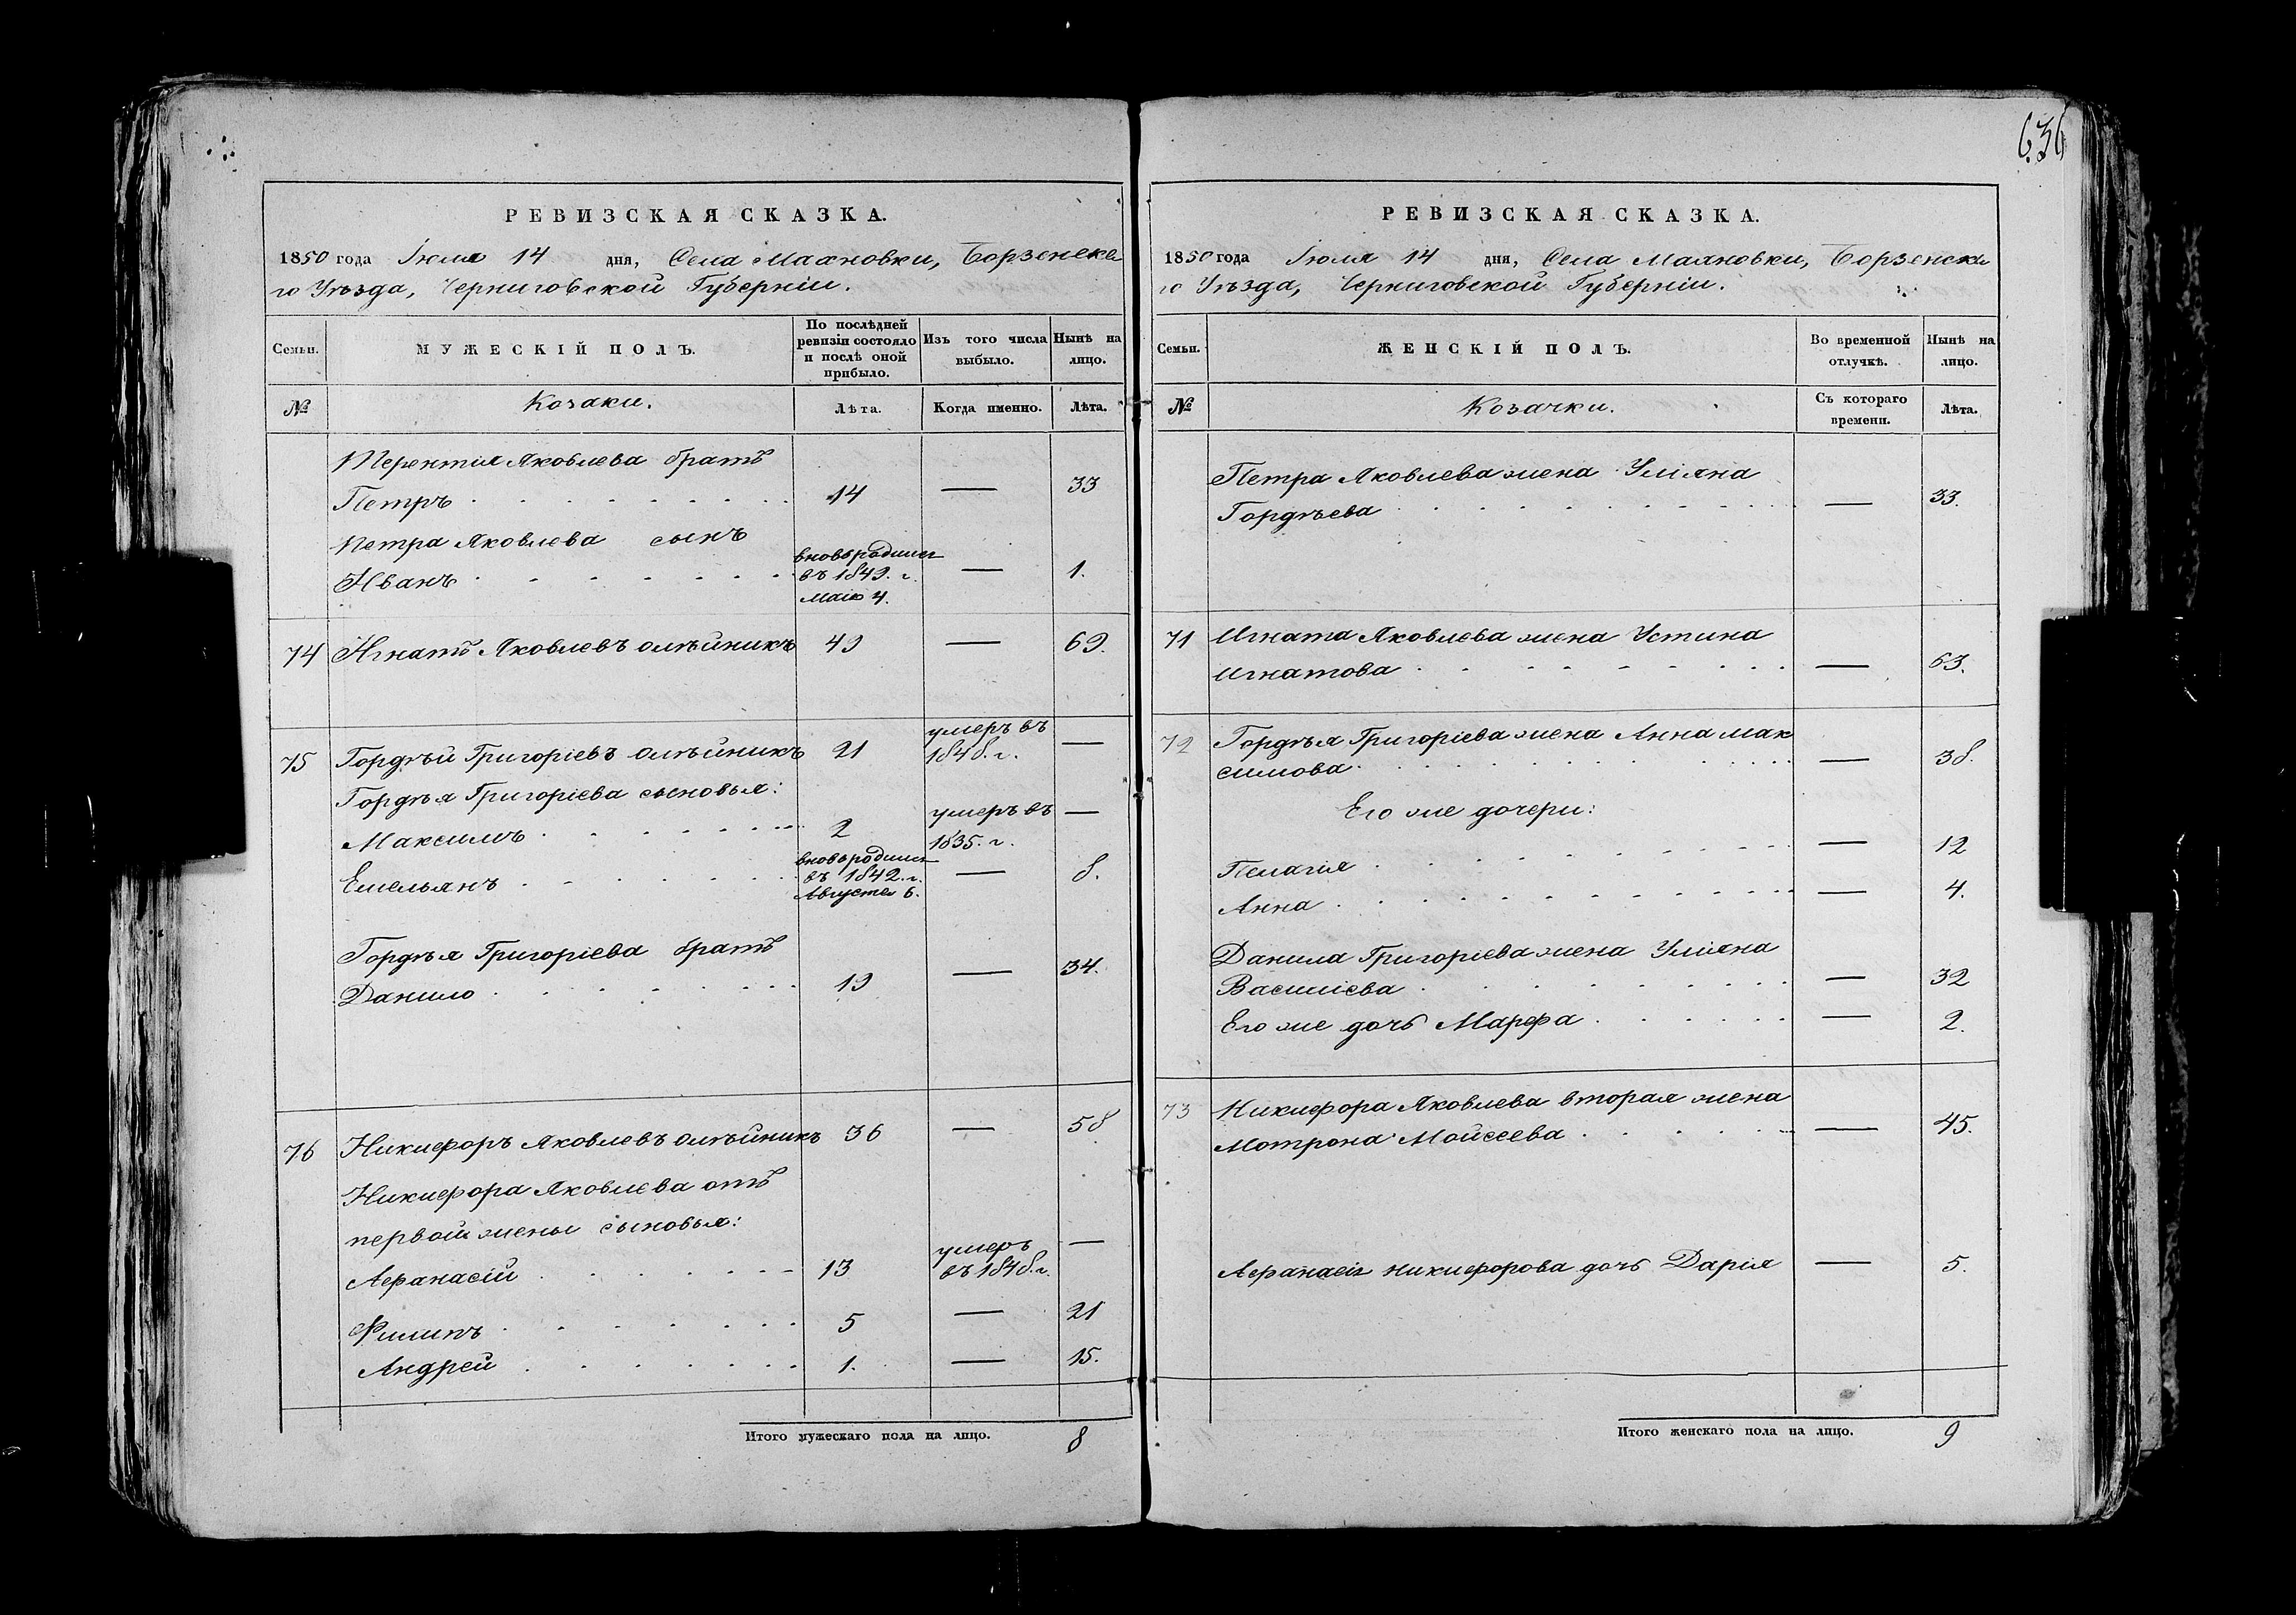 636
РЕВИЗСКАЯ СКАЗКА.
1850 года Іюля 14 дня, Села Маяновки, Борзенска
го Уѣзда, Черниговской Губерніи.
Семьи.
МУЖЕСКІЙ ПОЛЪ.
По послѣдней ревизіи состояло и послѣ оной прибыло.
Изъ того числа выбыло.
Нынѣ на лицо.
№
Козаки.
Лѣта.
Когда именно.
Лѣта.
Терентія Яковлева братъ
Петръ 14 — 33
Петра Яковлева сынъ
Иванъ вновь родился въ 1849. г. Маія 4. — 1.
74 Игнатъ Яковлевъ Олѣйникъ 49 — 69.
75 Гордѣй Григоріевъ Олѣйникъ 21 умеръ въ 1848. г. —
Гордѣя Григоріева сыновья:
Максимъ 2 умеръ въ 1835. г. —
Емельянъ вновь родился въ 1842. г. Августа 6. — 8.
Гордѣя Григоріева братъ
Данило 19 — 34.
76 Никифоръ Яковлевъ Олѣйникъ 36 — 58
Никифора Яковлева отъ
первой жены сыновья:
Афанасій 13 умеръ въ 1848. г. —
Филипъ 5 — 21
Андрей 1. — 15.
Итого мужескаго пола на лицо. 8
РЕВИЗСКАЯ СКАЗКА.
1850 года Іюля 14 дня, Села Маяновки, Борзенска
го Уѣзда, Черниговской Губерніи.
Семьи.
ЖЕНСКІЙ ПОЛЪ.
Во временной отлучкѣ.
Нынѣ на лицо.
№
Козачки.
Съ котораго времени.
Лѣта.
Петра Яковлева жена Уліяна
Гордѣева — 33.
71 Игната Яковлева жена Устина
Игнатова — 63.
72 Гордѣя Григоріева жена Анна Мак
симова — 38.
Его же дочери:
Пелагія — 12
Анна — 4.
Данила Григоріева жена Уліяна
Василіева — 32
Его же дочь Марфа — 2.
73 Никифора Яковлева вторая жена
Мотрона Мойсеева — 45.
Афанасія Никифорова дочь Дарія — 5.
Итого женскаго пола на лицо. 9